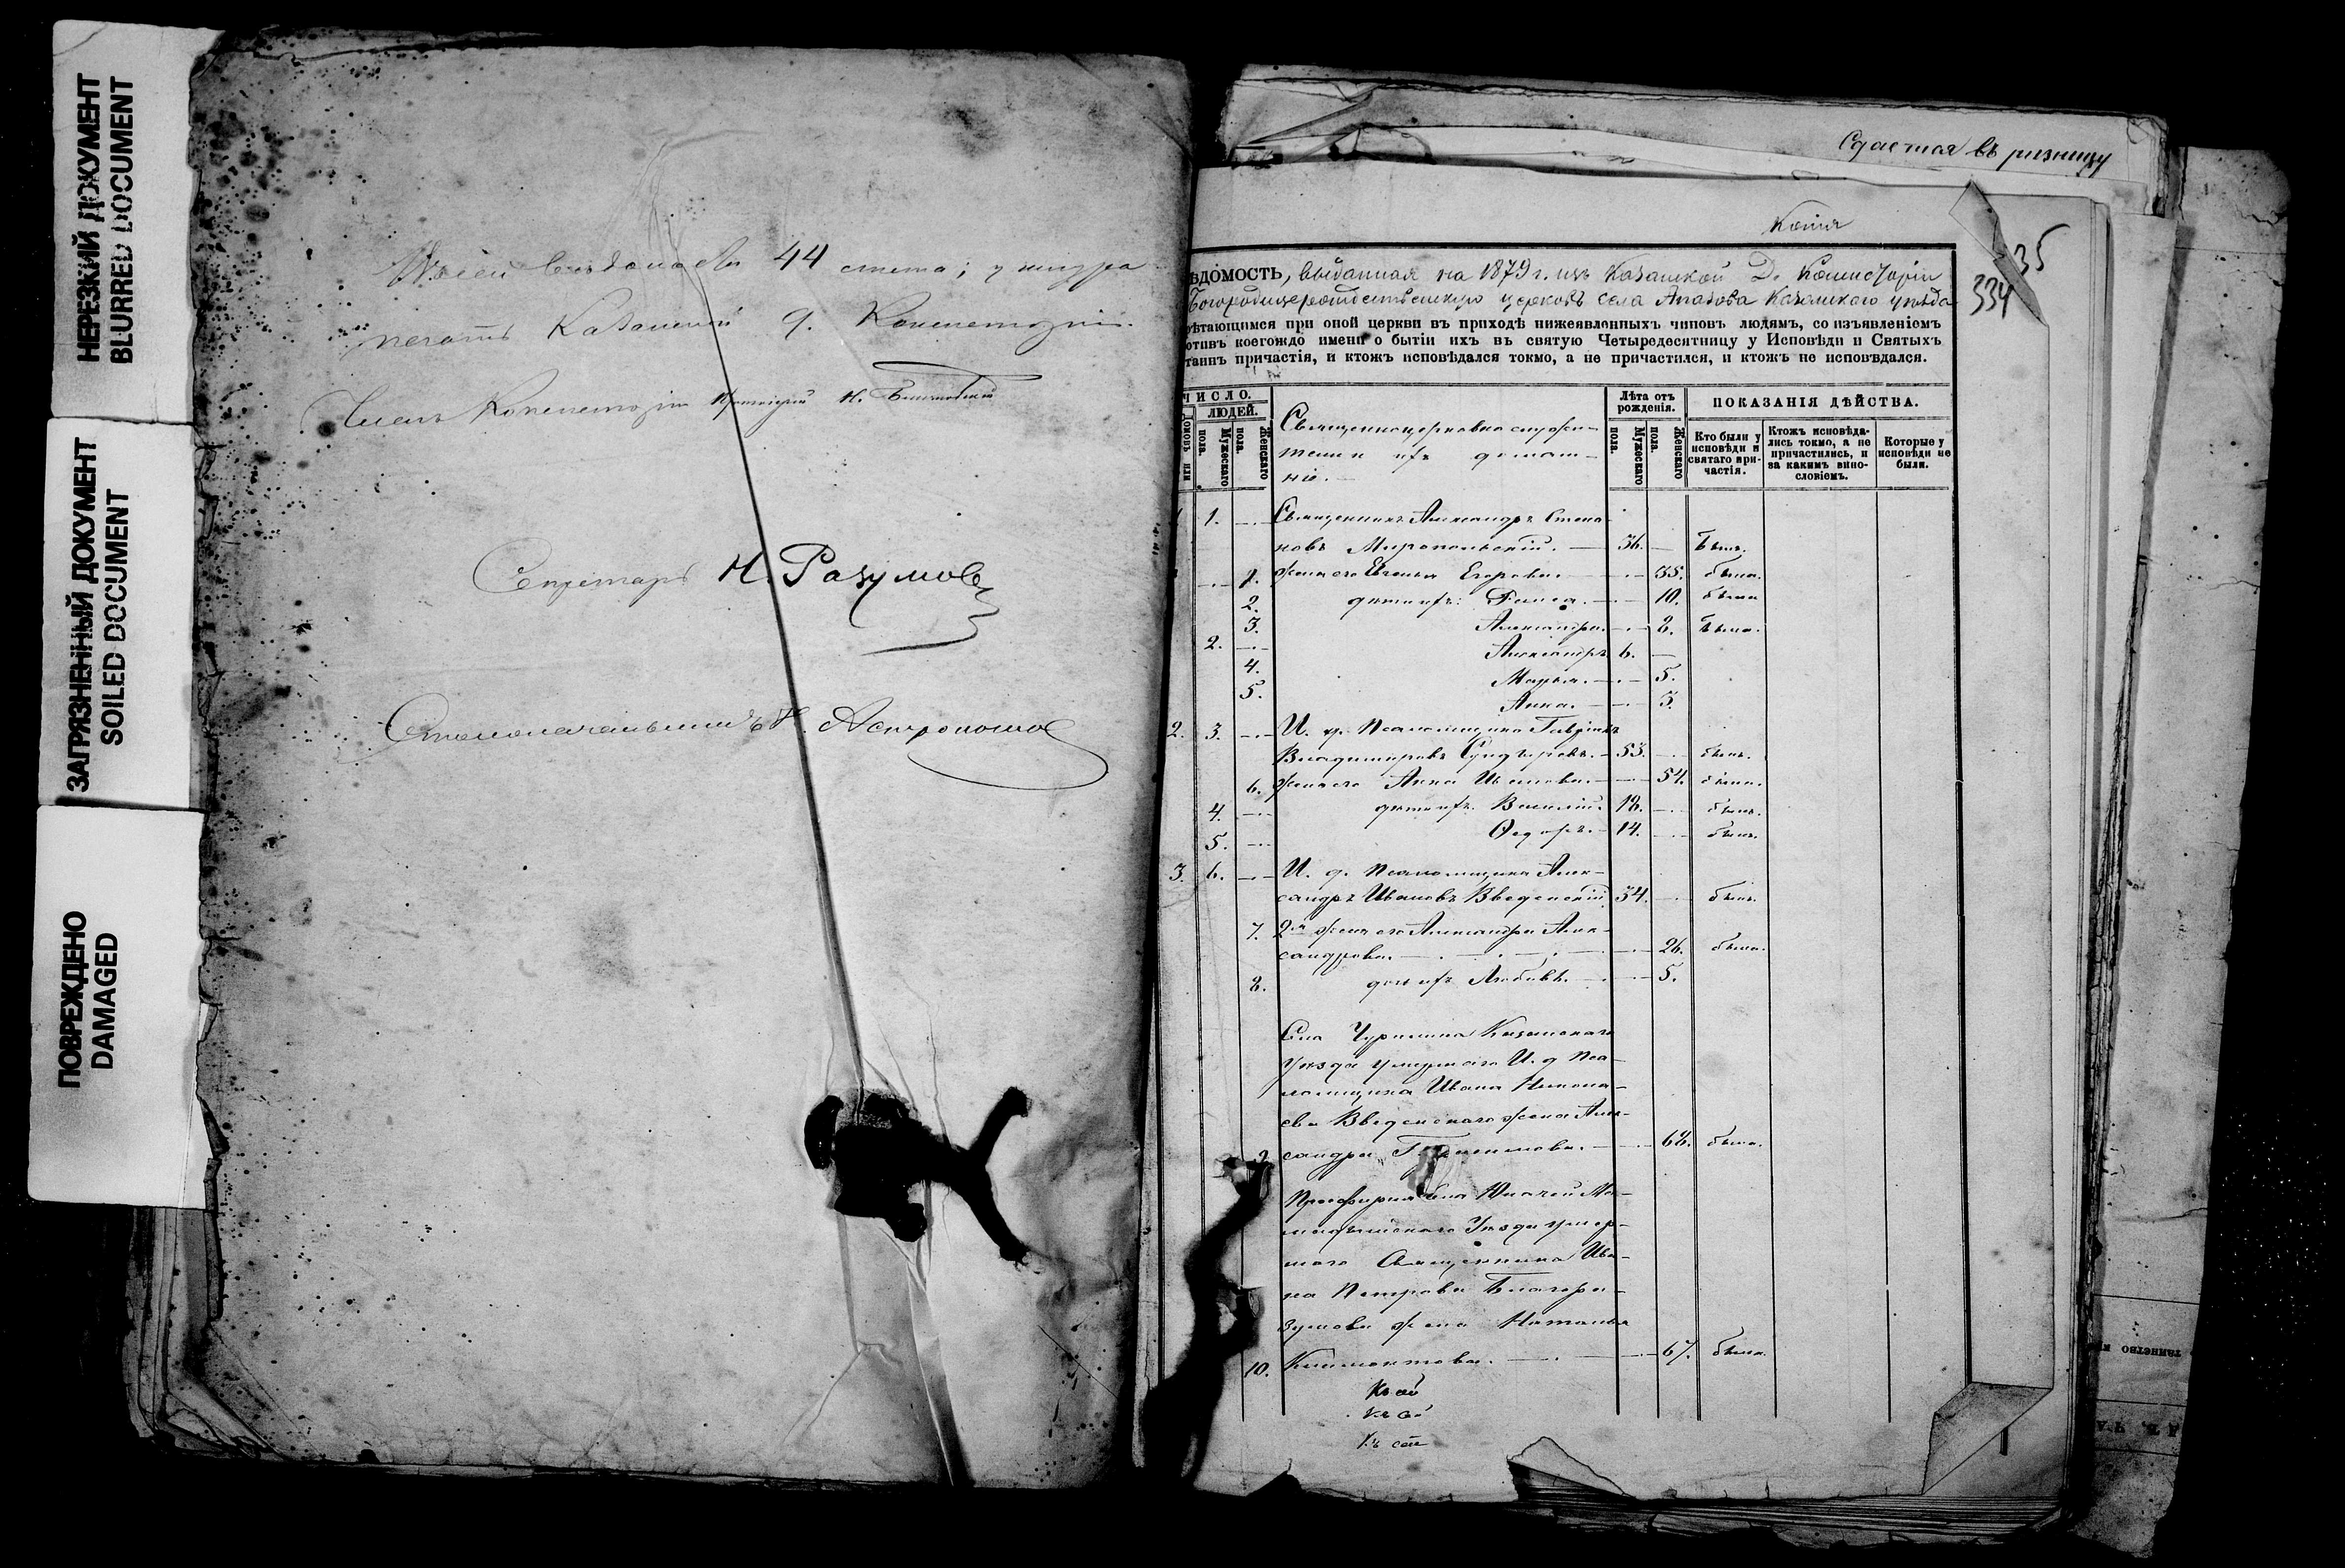 НЕРЕЗКИЙ ДОКУМЕНТ
BLURRED DOCUMENT
ЗАГРЯЗНЕННЫЙ ДОКУМЕНТ
SOILED DOCUMENT
ПОВРЕЖДЕНО
DAMAGED
44
печать Казанской Д. Консисторіи.
Членъ Консисторіи Протоіерей Н.
Секретарь Н. Разумовъ
Столоначальникъ
Сдается въ ризницу
Копія
335
334
ѢДОМОСТЬ, выданная на 1879 г. изъ Казанской Д. Консисторіи
Богородицерождественскую церковь села Апазова Казанскаго уѣзда
рѣтающимся при оной церкви въ приходѣ нижеявленныхъ чиновъ людямъ, со изъявленіемъ
отивъ коегождо имени о бытіи ихъ въ святую Четыредесятницу у Исповѣди и Святыхъ
таинъ причастія, и ктожъ исповѣдался токмо, а не причастился, и ктожъ не исповѣдался.
ЧИСЛО.
ЛЮДЕЙ.
Мужескаго пола.
Женскаго пола.
Священноцерковнослужи-
тели и ихъ домаш-
ніе.
Лѣта отъ рожденія.
Мужескаго пола.
Женскаго пола.
ПОКАЗАНІЯ ДѢЙСТВА.
Кто были у исповѣди и святаго причастія.
Ктожъ исповѣдались токмо, а не причастились, и за какимъ винословіемъ.
Которые у исповѣди не были.
1. Священникъ Александръ Степа-
новъ Миропольскій. 36. Былъ.
1. жена его Евгенія Егорова. 35. была.
2. дѣти ихъ: Фаина. 10. была
3. Александра. 8. была.
2. Александръ 6.
4. Марья. 5.
5. Анна. 3.
2. 3. И. д. Псаломщика Гавріилъ
Владиміровъ 53. былъ.
6. жена его Анна Иванова. 54. была.
4. дѣти ихъ. Василій. 18. былъ.
5. Ѳедоръ. 14. былъ.
3. 6. И. д. Псаломщика Алек-
сандръ Ивановъ Введенскій 34. былъ.
7. 2я жена его Александра Алек-
сандрова. 26. была.
8. дочь ихъ Любовь. 5.
Села Чурилина Казанскаго
Уѣзда умершаго И. д Пса-
ломщика Ивана Никола-
ева Введенскаго жена Алек-
9 сандра 68. была.
Просфирня села Юначей Ма-
мадышскаго Уѣзда умер-
шаго Священника Ива-
на Петрова Благора-
зумова жена Наталья
10. Климентова. 67. была.